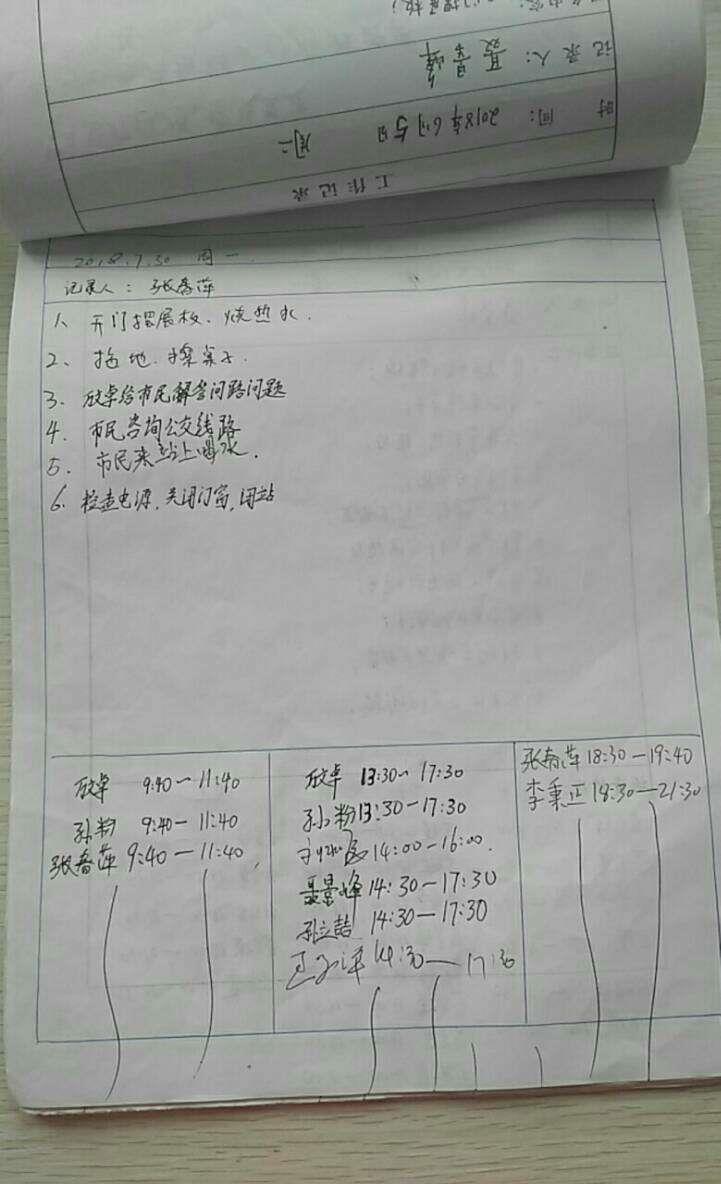 工作记录
时 间：2018年6月5日 周二
记录人：聂景峰
2018.7.30 周一
记录人：张春萍
1、开门摆展板、烧热水.
2、拖地.擦桌子.
3、欣卓给市民解答问路问题
4、市民咨询公交线路
5、市民来站上喝水.
6、检查电源,关闭门窗,闭站
欣卓 9:40—11:40
孙粉 9:40—11:40
张春萍 9:40—11:40
欣卓 13:30—17:30
孙粉 13:30—17:30
14:00—16:00.
聂景峰 14:30—17:30
孙立喆 14:30—17:30
14:30—17:30
张春萍 18:30—19:40
李秉正 18:30—21:30